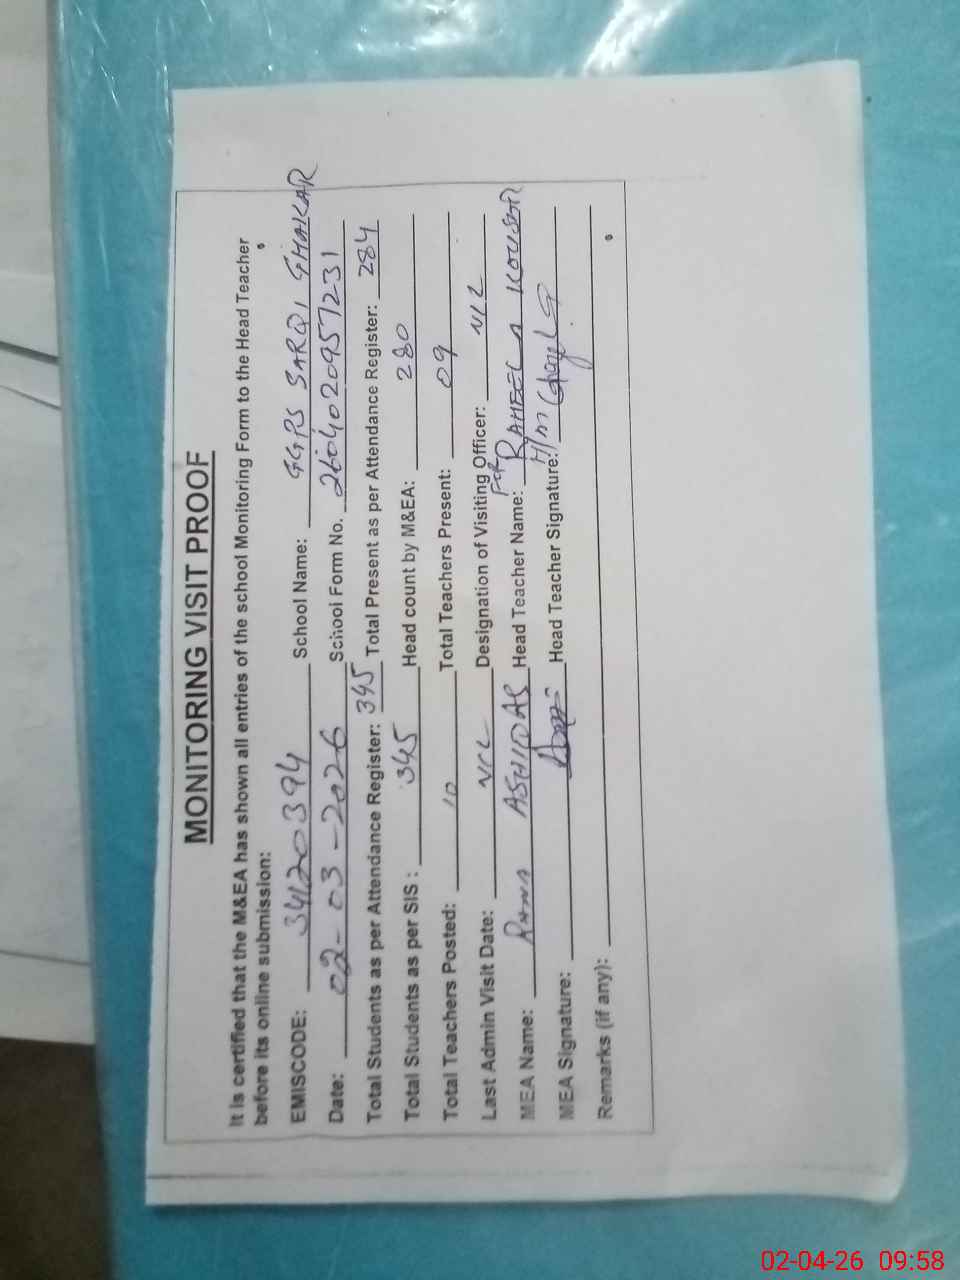 MONITORING VISIT PROOF
It is certified that the M&EA has shown all entries of the school Monitoring Form to the Head Teacher
before its online submission:
EMISCODE: 34120394 School Name: GGPS SARQI GHAKAR
Date: 02-03-2026 School Form No. 2604020957231
Total Students as per Attendance Register: 345 Total Present as per Attendance Register: 284
Total Students as per SIS: 345 Head count by M&EA: 280
Total Teachers Posted: 10 Total Teachers Present: 09
Last Admin Visit Date: NIL Designation of Visiting Officer: NIL
MEA Name: RANA ASHIDAS Head Teacher Name: For RAHEELA KOUSAR
MEA Signature: Head Teacher Signature: H/M
Remarks (if any):
02-04-26 09:58